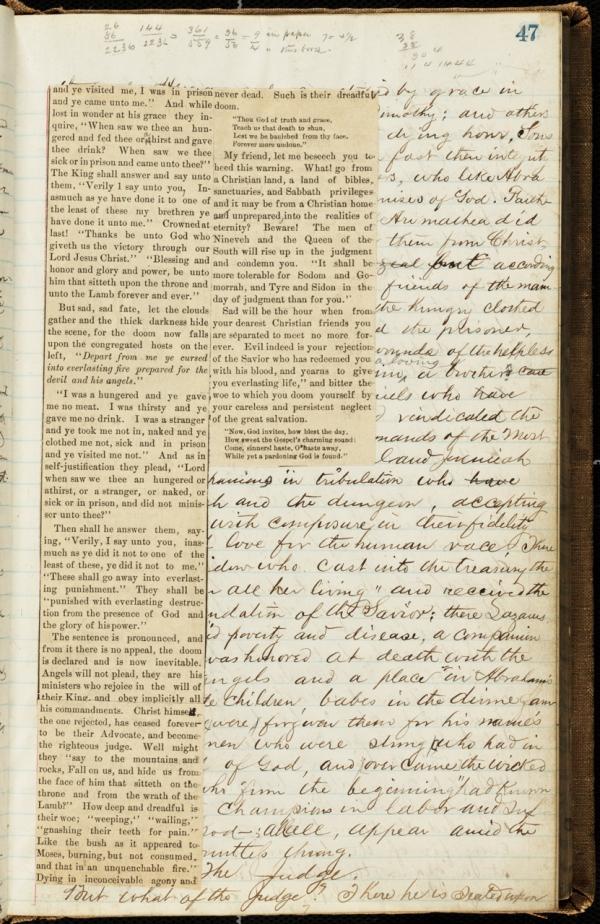 47
and ye visited me, I was in prison
and ye came unto me." And while
lost in wonder at his grace they in-
quire, "When saw we thee an hun-
gered and fed thee or thirst and gave
thee drink? When saw we thee
sick or in prison and came unto thee?"
The King shall answer and say unto
them, "Verily I say unto you, In-
asmuch as ye have done it to one of
the least of these my brethren ye
have done it unto me." Crowned at
last! "Thanks be unto God who
giveth us the victory through our
Lord Jesus Christ." "Blessing and
honor and glory and power, be unto
him that sitteth upon the throne and
unto the Lamb forever and ever."
But sad, sad fate, let the clouds
gather and the thick darkness hide
the scene, for the doom now falls
upon the congregated hosts on the
left, "Depart from me ye cursed
into everlasting fire prepared for the
devil and his angels."
"I was a hungered and ye gave
me no meat. I was thirsty and ye
gave me no drink. I was a stranger
and ye took me not in, naked and ye
clothed me not, sick and in prison
and ye visited me not." And as in
self-justification they plead, "Lord
when saw we thee an hungered or
athirst, or a stranger, or naked, or
sick or in prison, and did not minis-
ser unto thee?"
Then shall he answer them, say-
ing, "Verily, I say unto you, inas-
much as ye did it not to one of the
least of these, ye did it not to me."
"These shall go away into everlast-
ing punishment." They shall be
"punished with everlasting destruc-
tion from the presence of God and
the glory of his power."
The sentence is pronounced, and
from it there is no appeal, the doom
is declared and is now inevitable.
Angels will not plead, they are his
ministers who rejoice in the will of
their King, and obey implicitly all
his commandments. Christ himself,
the one rejected, has ceased forever
to be their Advocate, and become
the righteous judge. Well might
they "say to the mountains and
rocks, Fall on us, and hide us from
the face of him that sitteth on the
throne and from the wrath of the
Lamb?" How deep and dreadful is
their woe; "weeping," "wailing,"
"gnashing their teeth for pain."
Like the bush as it appeared to
Moses, burning, but not consumed,
and that in an unquenchable fire.
Dying in inconceivable agony and
never dead. Such is their dreadful
doom.
"Thou God of truth and grace,
Teach us that death to shun,
Lest we be banished from thy face,
Forever more undone."
My friend, let me beseech you to
heed this warning. What! go from
a Christian land, a land of bibles,
sanctuaries, and Sabbath privileges
and it may be from a Christian home
and unprepared into the realities of
eternity? Beware! The men of
Nineveh and the Queen of the
South will rise up in the judgment
and condemn you. "It shall be
more tolerable for Sodom and Go-
morrah, and Tyre and Sidon in the
day of judgment than for you."
Sad will be the hour when from
your dearest Christian friends you
are separated to meet no more for-
ever. Evil indeed is your rejection
of the Savior who has redeemed you
with his blood, and yearns to give
you everlasting life," and bitter the
woe to which you doom yourself by
your careless and persistent neglect
of the great salvation.
"Now, God invites, how blest the day,
How sweet the Gospel's charming sound:
Come, sinners! haste, O haste away,
While yet a pardoning God is found."
by grace in
and others
dying hours,
who like Abra
of God. Faithe
Arimathea did
them from Christ,
zeal but according
friends of the man
the hungry clothed
the prisoner,
of the helpless
a loving
a brother's care
who have
vindicated the
of the Most
and Jeremiah
in tribulation who have
and the dungeon, accepting
with composure in their fidelity
love for the human race. There
who cast into the treasury the
all her living" and received the
of the Savior; there Lazarus
poverty and disease, a companion
was honored at death with the
and a place "in Abraham's
children, babes in the divine fam
were forgiven them for his name's
men who were strong who had in
of God, and overcame the wicked
"from the beginning" had known
Champions in labor and suf
all, appear amid the
throng.
The Judge.
But what of the Judge? There he is seated upon